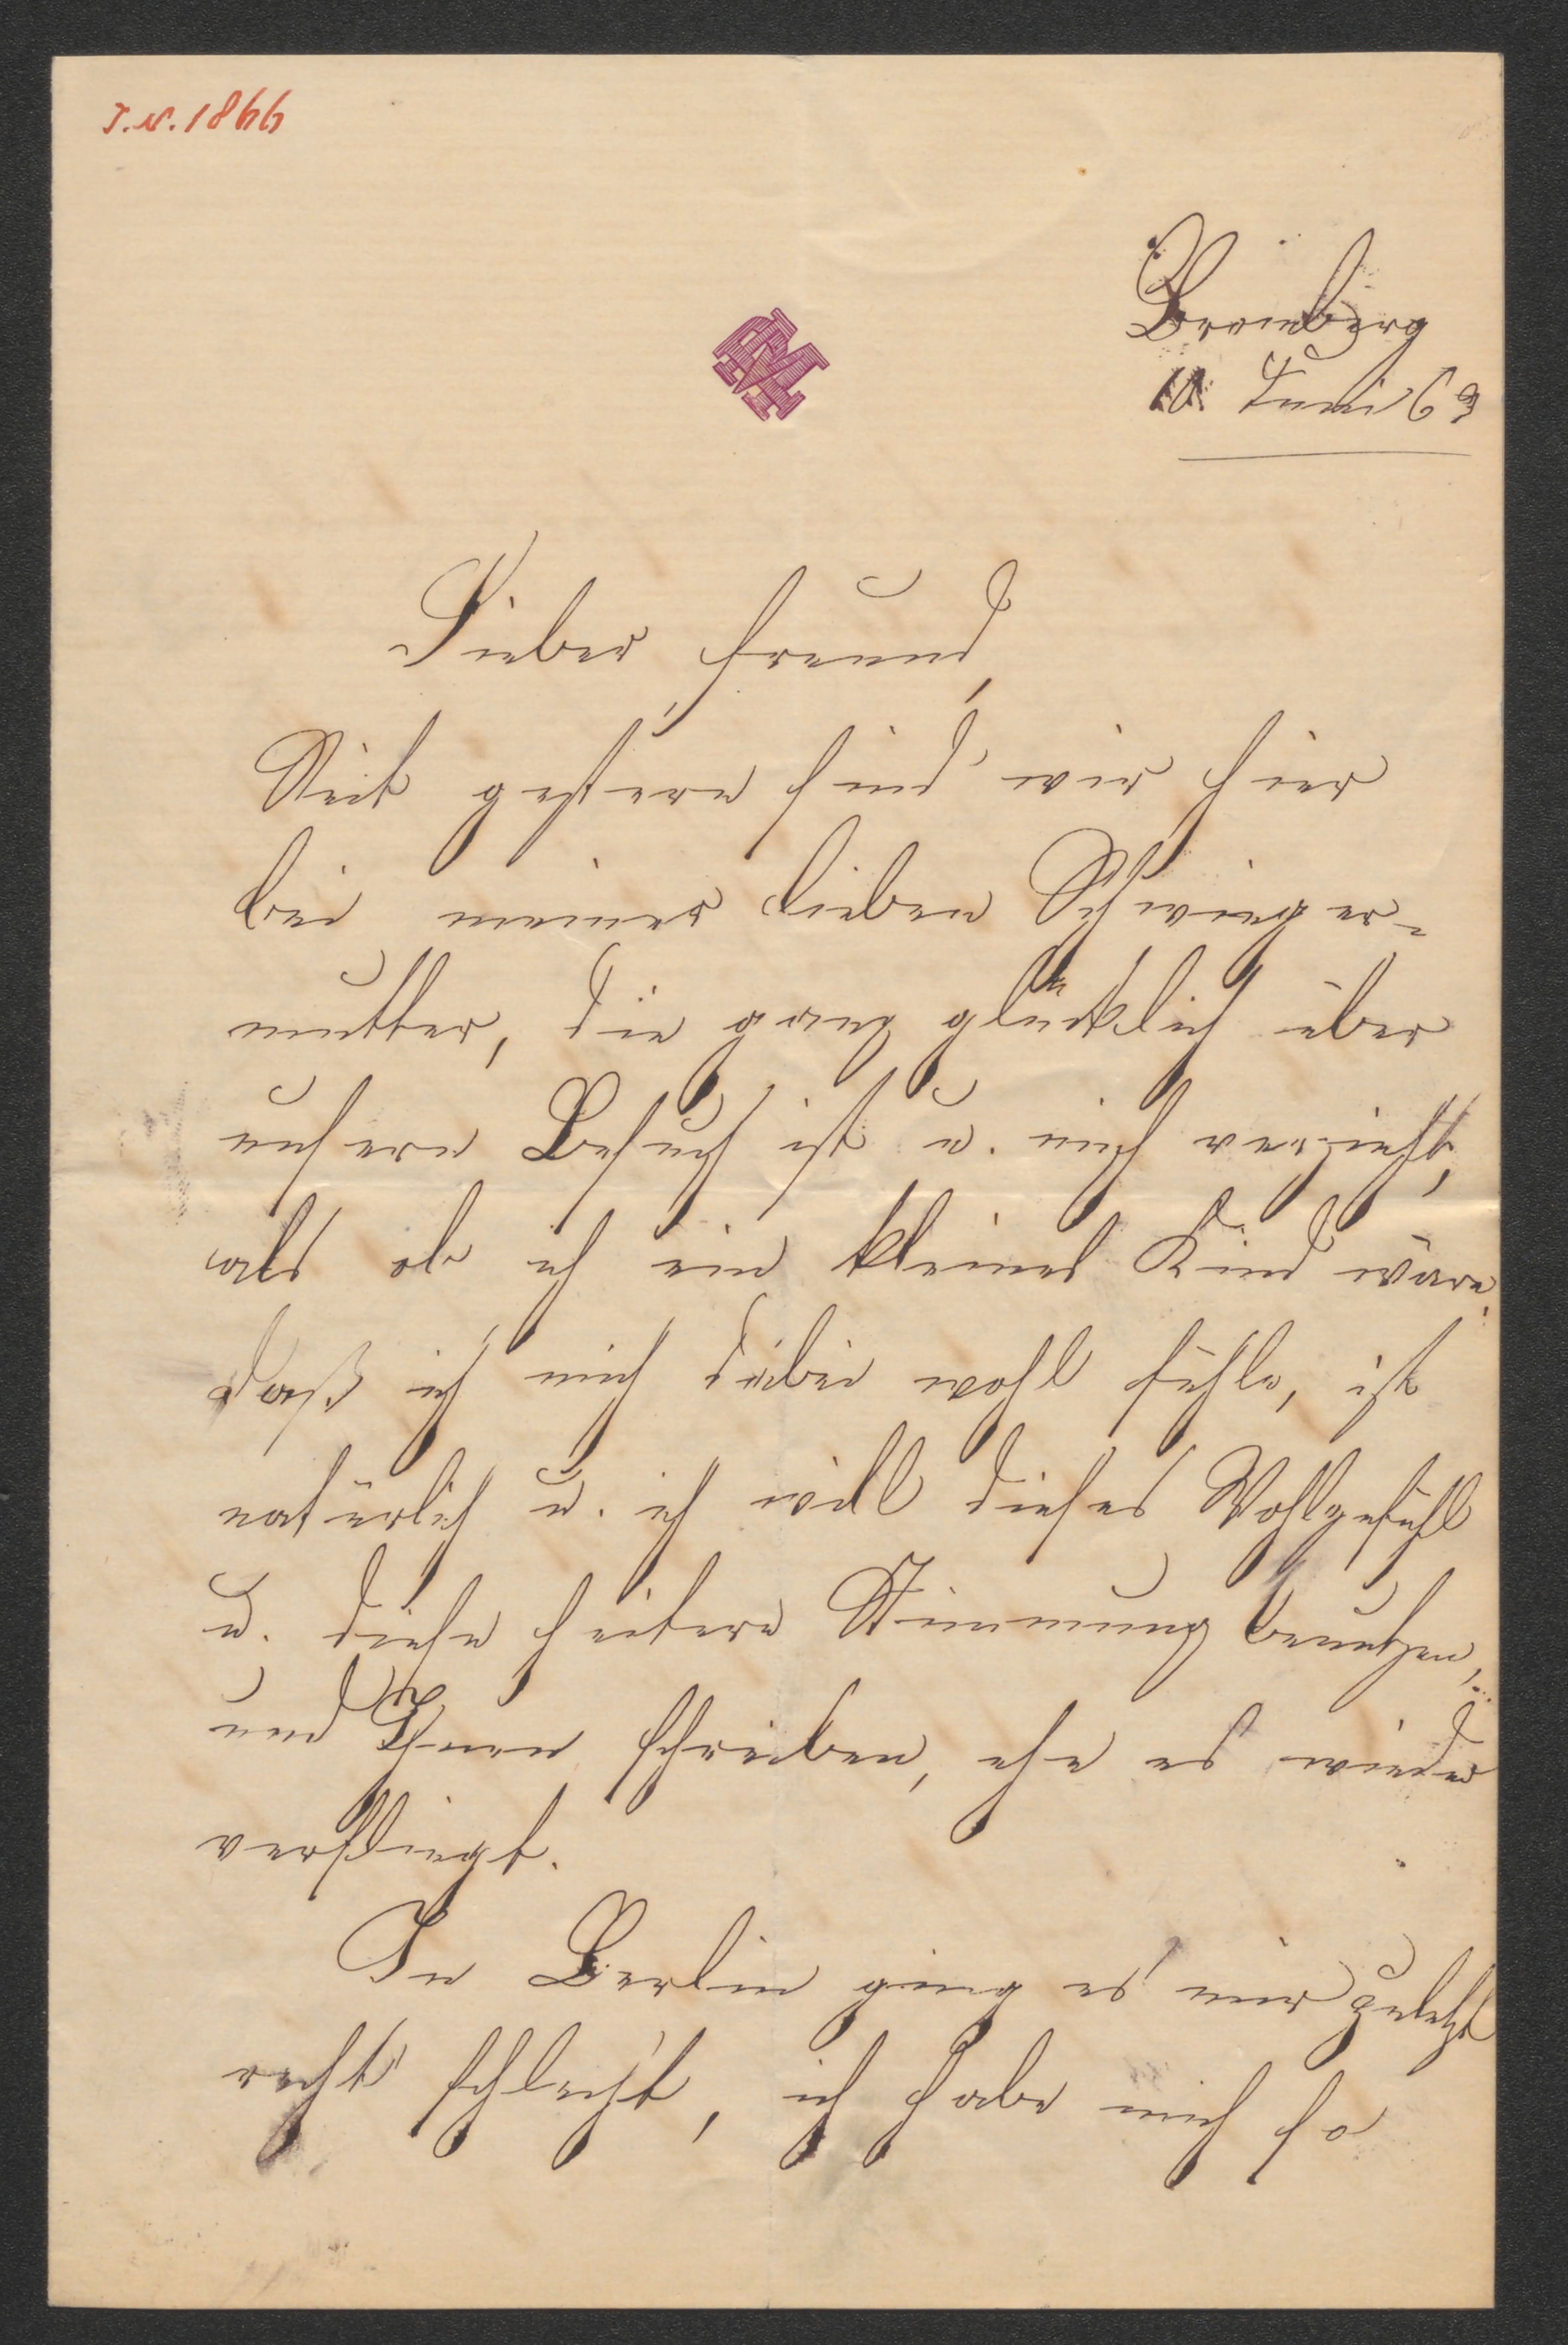 I.N. 1866
Bromberg
10. Juni 69
Lieber Freund,
Seit gestern sind wir hier
bei meiner lieben Schwieger-
mutter, die ganz glücklich über
unsern Besuch ist u. mich verzieht,
als ob ich ein kleines Kind wäre.
Daß ich mich dabei wohl fühle, ist
natürlich u. ich will dieses Wohlgefühl
u. diese heitere Stimmung benutzen,
und Ihnen schreiben, ehe es wieder
verfliegt.
In Berlin ging es mir zuletzt
recht schlecht, ich habe mich so